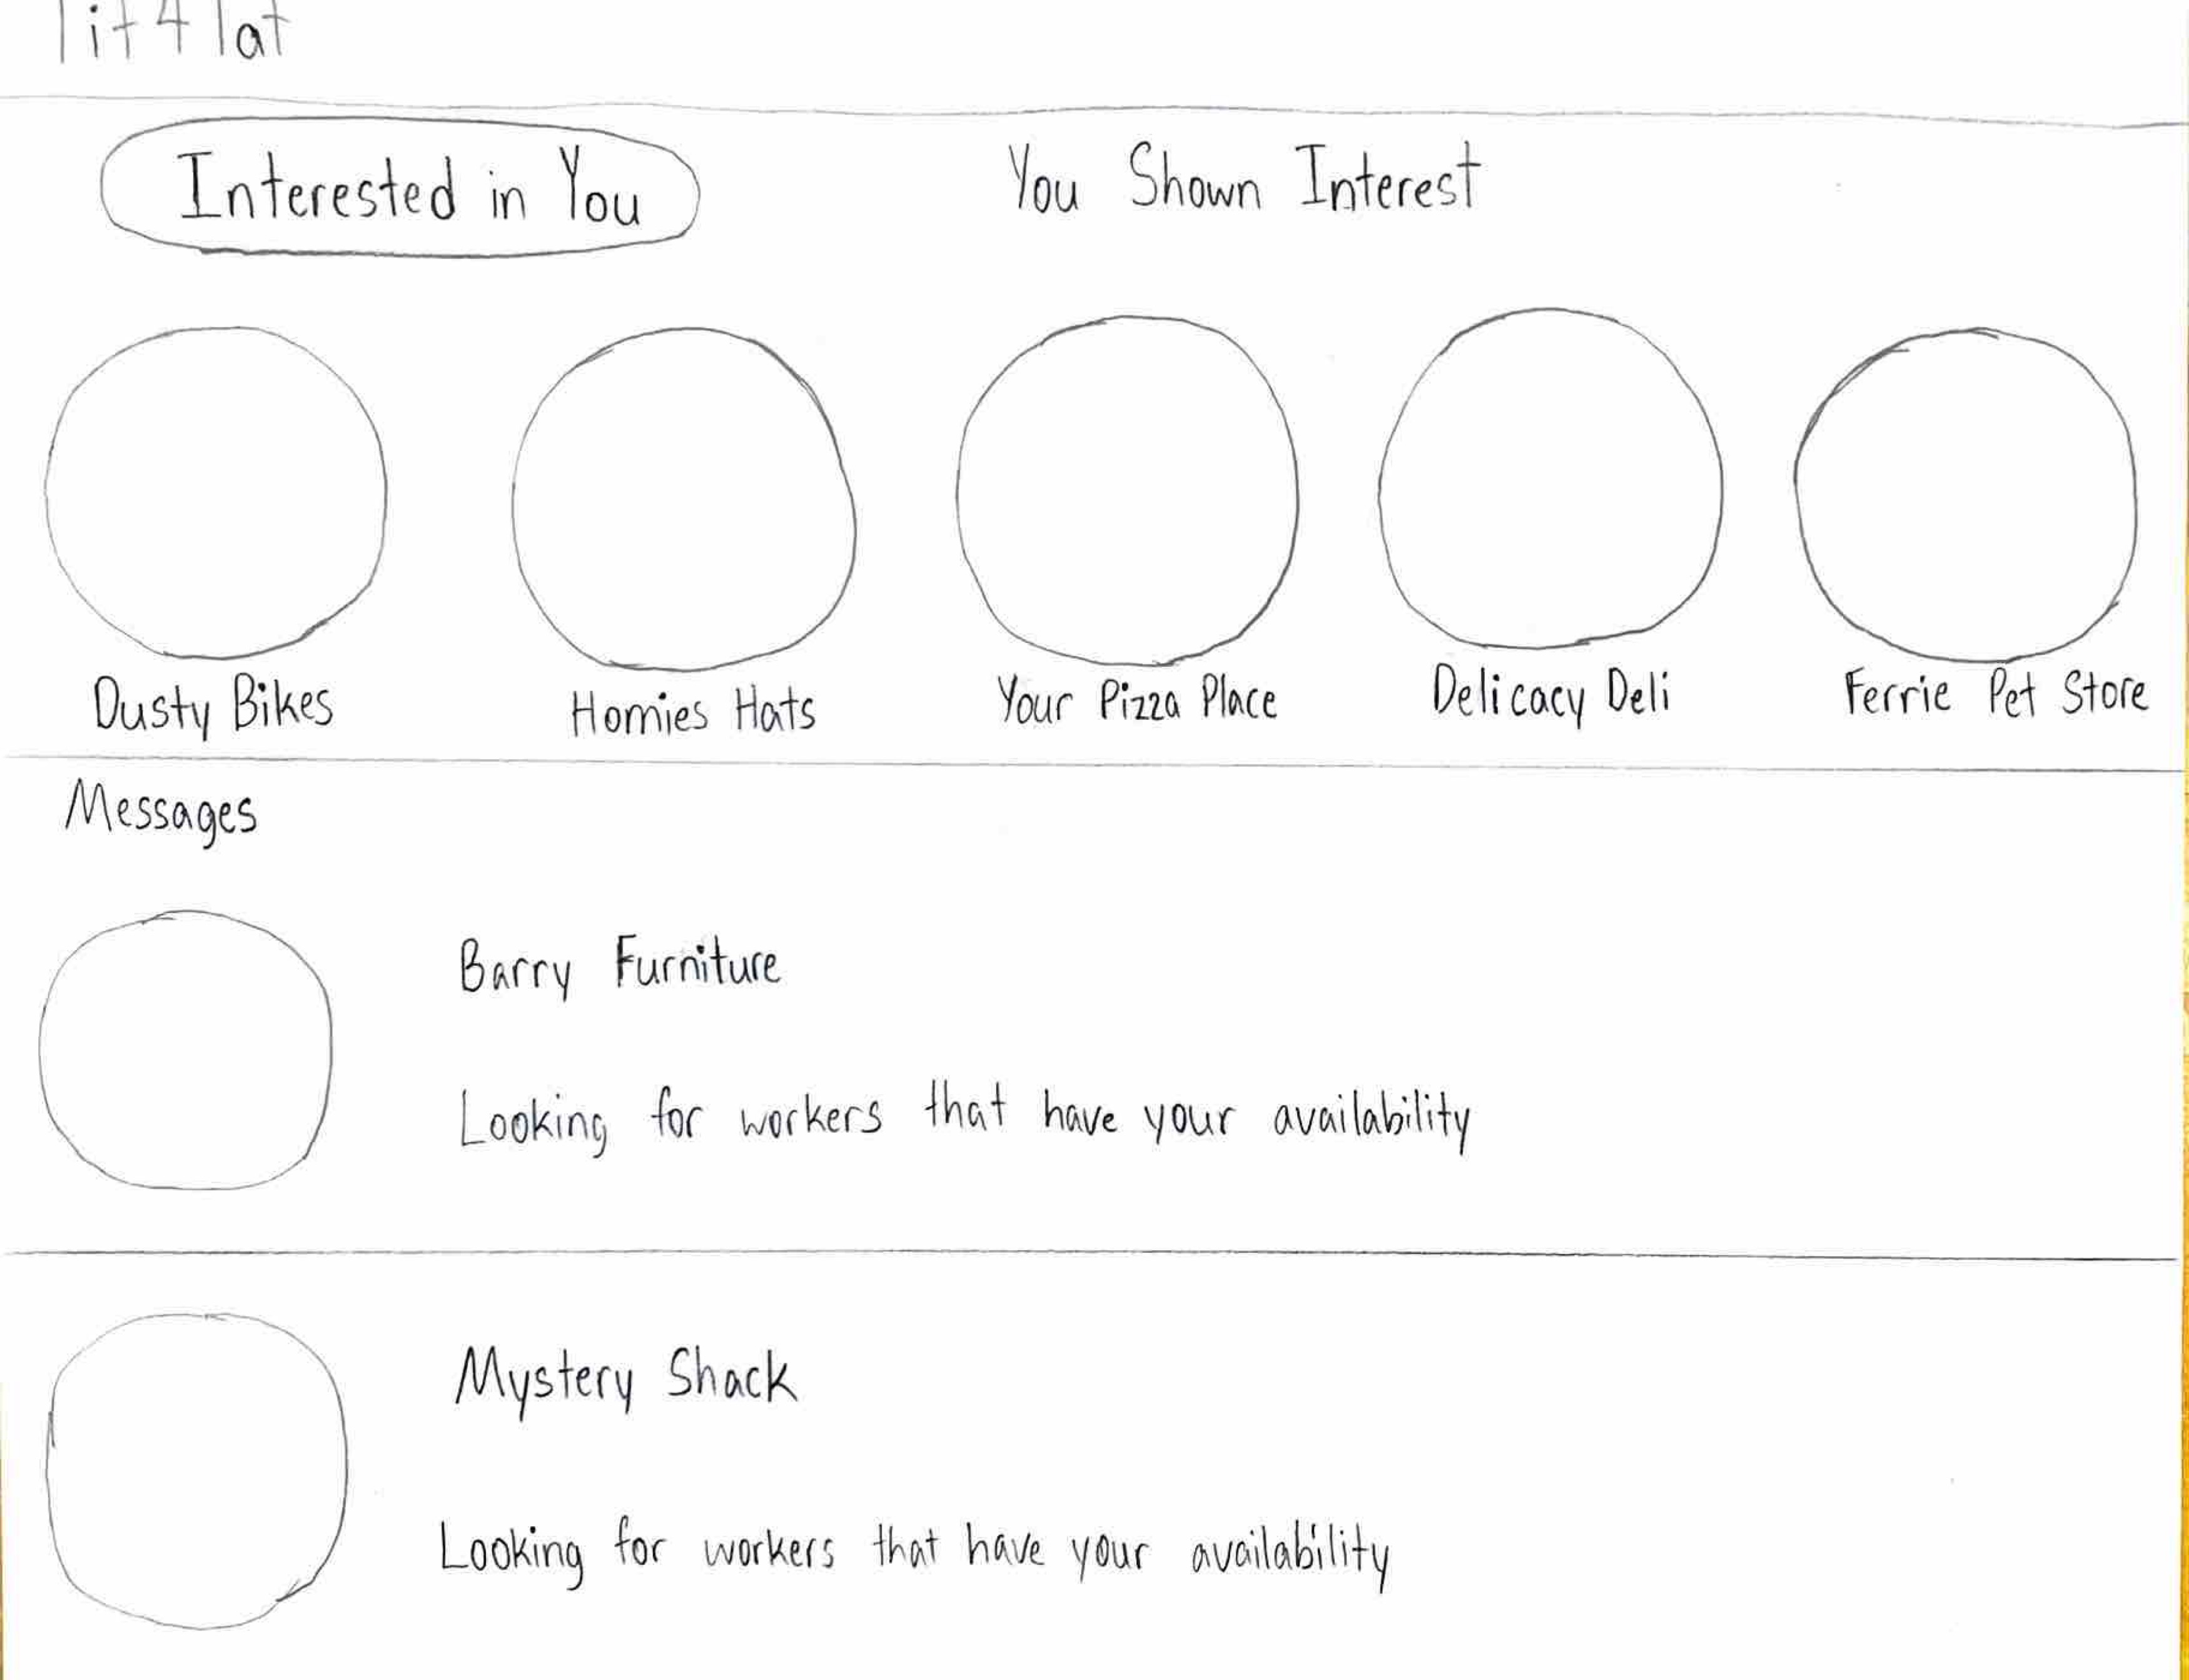 Interested in You
You Shown Interest
Dusty Bikes
Homies Hats
Your Pizza Place
Delicacy Deli
Ferrie Pet Store
Messages
Barry Furniture
Looking for workers that have your availability
Mystery Shack
Looking for workers that have your availability